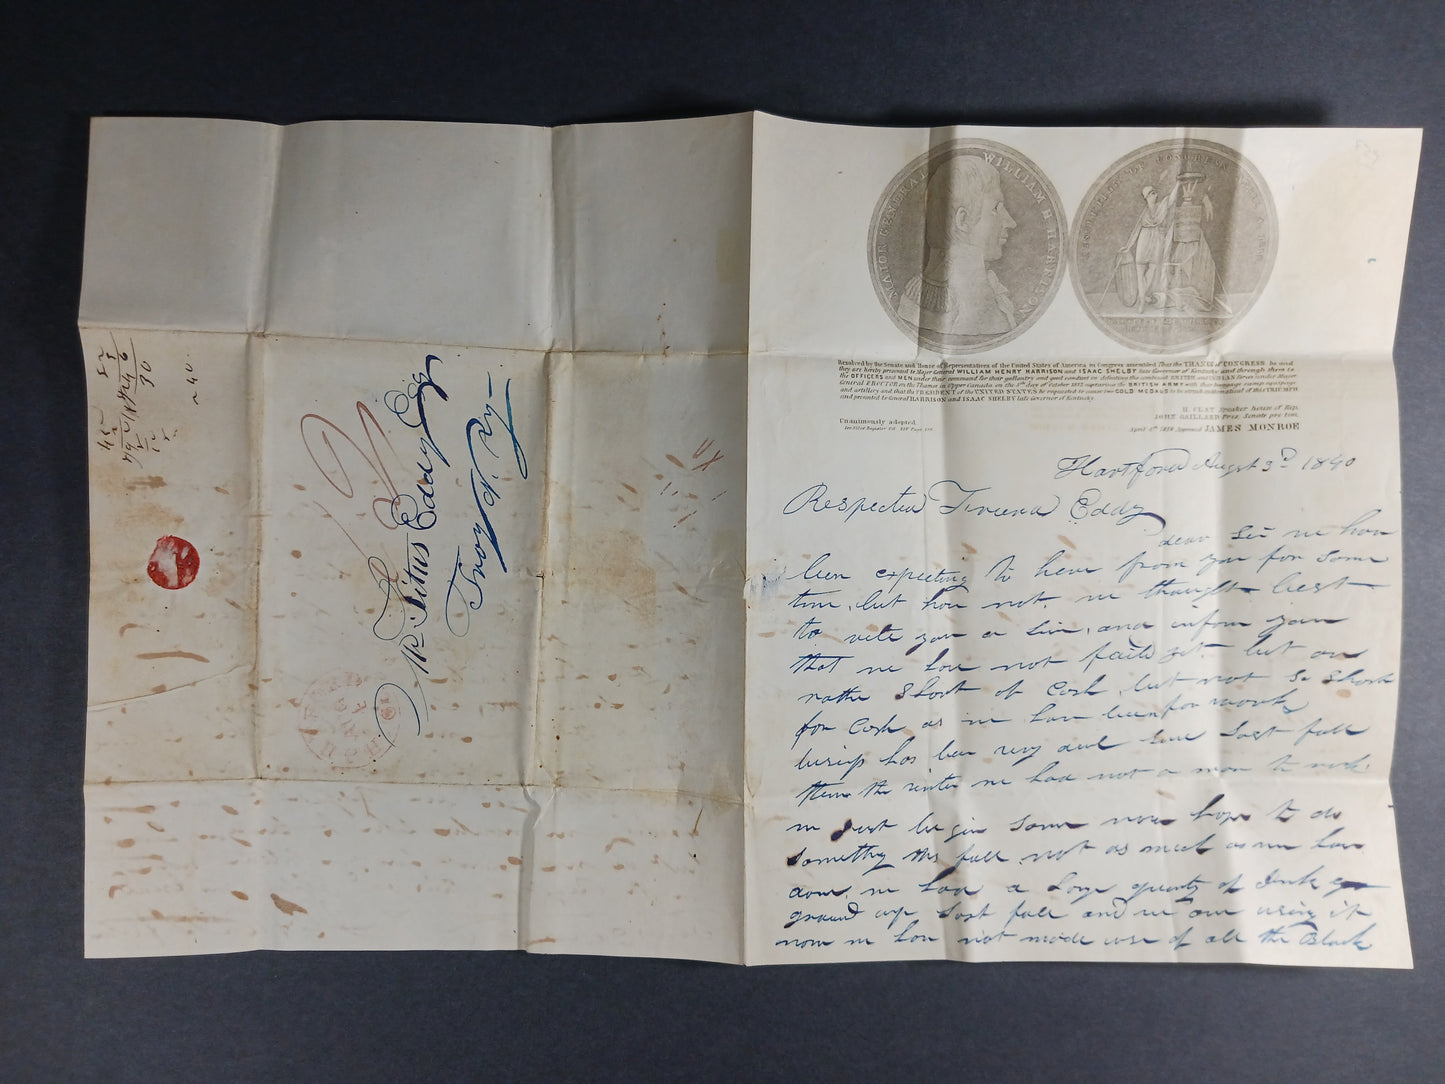 Mr Titus Eddy Esq
Troy N. Y.
MAJOR GENERAL WILLIAM H. HARRISON
RESOLUTION OF CONGRESS APRIL 4 1818
Resolved by the Senate and House of Representatives of the United States of America in Congress assembled That the THANKS of CONGRESS be and
they are hereby presented to Major General WILLIAM HENRY HARRISON and ISAAC SHELBY late Governor of Kentucky and through them to
the OFFICERS and MEN under their command for their gallantry and good conduct in defeating the combined BRITISH and INDIAN forces under Major
General PROCTOR on the Thames in Upper Canada on the 5th day of October 1813 capturing the BRITISH ARMY with their baggage camp equipage
and artillery and that the PRESIDENT of the UNITED STATES be requested to cause two GOLD MEDALS to be struck emblematical of this TRIUMPH
and presented to General HARRISON and ISAAC SHELBY late Governor of Kentucky.
H CLAY Speaker house of Rep.
JOHN GAILLARD Pres. Senate pro tem.
Unanimously adopted.
April 4th 1818 Approved JAMES MONROE
Hartford Augst 3d 1840
Respected Friend Eddy
dear Sir we hav
been expecting to hear from you for Some
time, but hav not. we thought best
to write you a line, and inform you
that we hav not faild yet. but are
rather Short of Cash, but not So Short
for Cash as we hav been for work
busnss has been very dull Since last fall
then the winter we had not a man to work
we Just begin Some now hope to do
Something this fall not as much as we hav
done, we hav a large quanty of Ink
ground up last fall and we are using it
now we hav not made use of all the Black